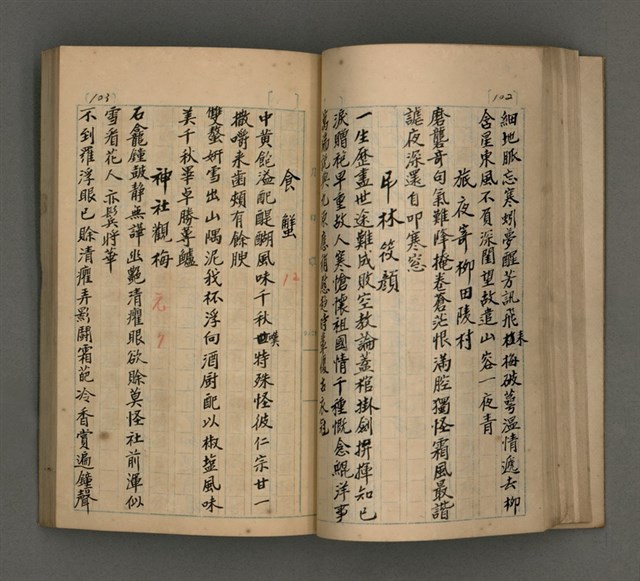 102
細地眠忘寒蚓夢醒芳訊飛來梅破萼溫情遞去柳
含星東風不負深閨望故遣山容一夜青
旅夜寄柳田陵村
磨礱奇句氣難降掩卷蒼茫恨滿腔獨怪霜風最諧
謔夜深還自叩寒窓
弔林筱顏
一生歷盡世途難成敗空教論蓋棺掛劍揮知已
淚贈袍早重故人寒愴懷祖國情千種慨念鯤洋事
103
食蟹
12
中黃飽溢配醍醐風味千秋嘆特殊怪彼仁宗甘一
撒嚼來齒頰有餘腴
雙螯妍雪出山隅泥我杯浮向酒厨配以椒薑風味
美千秋畢卓勝蓴鱸
神社觀梅
元 7
石龕鐘鼓静無譁幽艷清癯眼欲賒莫怪社前渾似
雪看花人亦鬂將華
不到羅浮眼已賒清癯弄影鬪霜葩冷香賞遍鐘聲